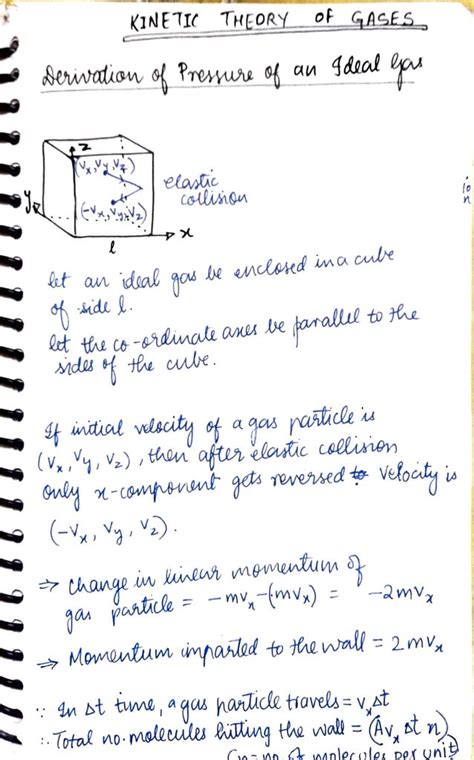 KINETIC THEORY OF GASES
Derivation of Pressure of an Ideal Gas
z
(Vx, Vy, Vz)
elastic
collision
y
(-Vx, Vy, Vz)
x
l
let an ideal gas be enclosed in a cube
of side l.
let the co-ordinate axes be parallel to the
sides of the cube.
If initial velocity of a gas particle is
(Vx, Vy, Vz), then after elastic collision
only x-component gets reversed velocity is
(-Vx, Vy, Vz).
⇒ change in linear momentum of
gas particle = -mvx-(mvx) = -2mvx
⇒ Momentum imparted to the wall = 2mvx
∵ In Δt time, a gas particle travels = vxΔt
∴ Total no. molecules hitting the wall = (Avx Δt n)
(n = no. of molecules per unit